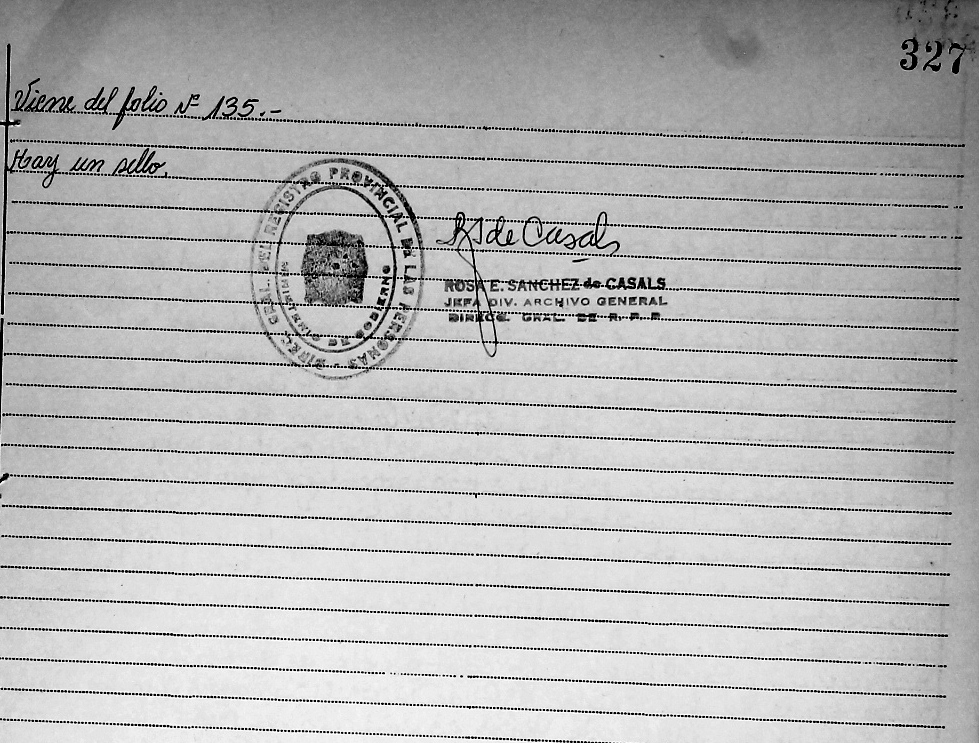 327
Viene del folio Nº 135.-
Hay un sello.
DIREC. GRAL. DEL REGISTRO PROVINCIAL DE LAS PERSONAS
MINISTERIO DE GOBIERNO
de Casals
ROSA E. SANCHEZ de CASALS
JEFA DIV. ARCHIVO GENERAL
DIREC. GRAL. DE R. P. P.